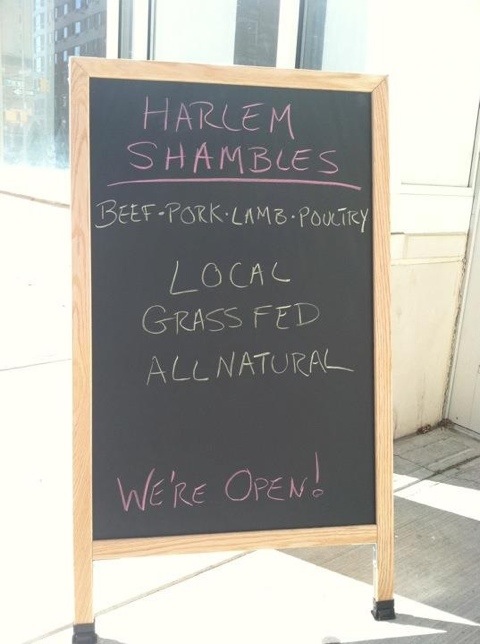 HARLEM
SHAMBLES
BEEF-PORK·LAMB·POULTRY
LOCAL
GRASS FED
ALL NATURAL
WE'RE OPEN!